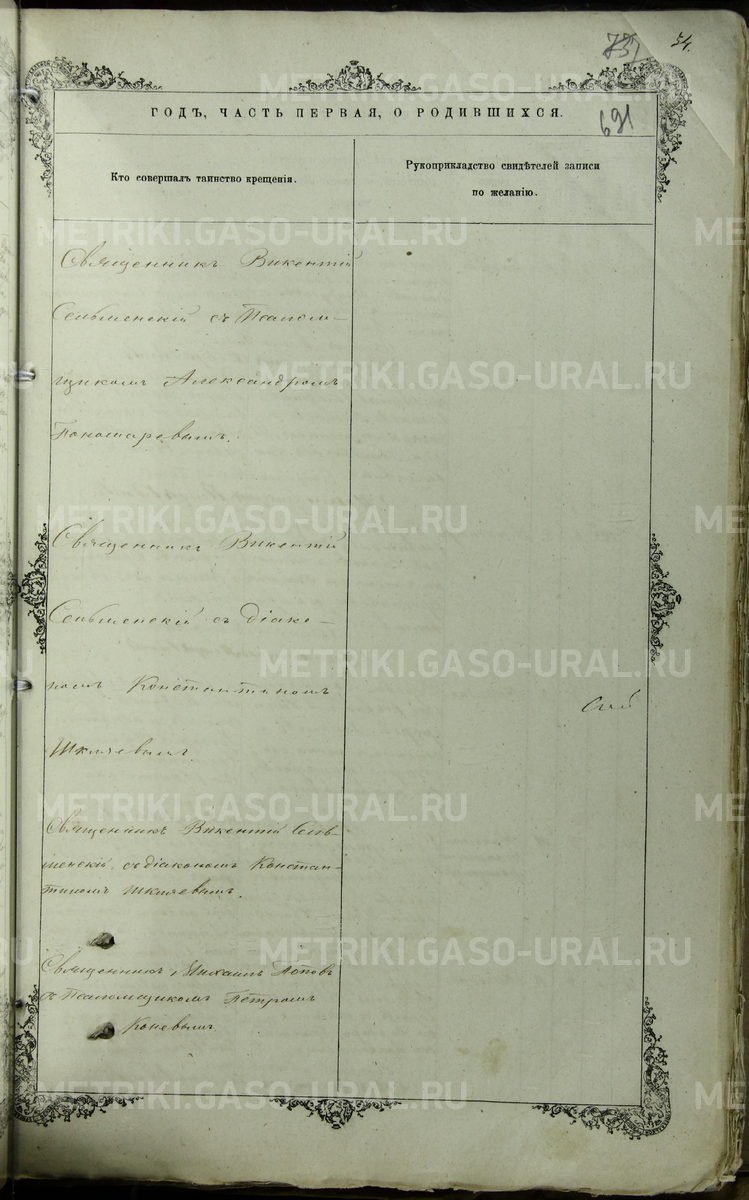 54.
731
691
ГОДЪ, ЧАСТЬ ПЕРВАЯ, О РОДИВШИХСЯ.
Кто совершалъ таинство крещенія.
Рукоприкладство свидѣтелей записи
по желанію.
Священникъ Викентій
Сельменскій съ Псалом-
щикомъ Александромъ
Пономаревымъ.
Священникъ Викентій
Сельменскій съ діако-
номъ Константиномъ
Шкляевымъ.
Священникъ Викентій Сель-
менскій съ діакономъ Констан-
тиномъ Шкляевымъ.
Священникъ Михаилъ Поповъ
съ Псаломщикомъ Петромъ
Коневымъ
METRIKI.GASO-URAL.RU